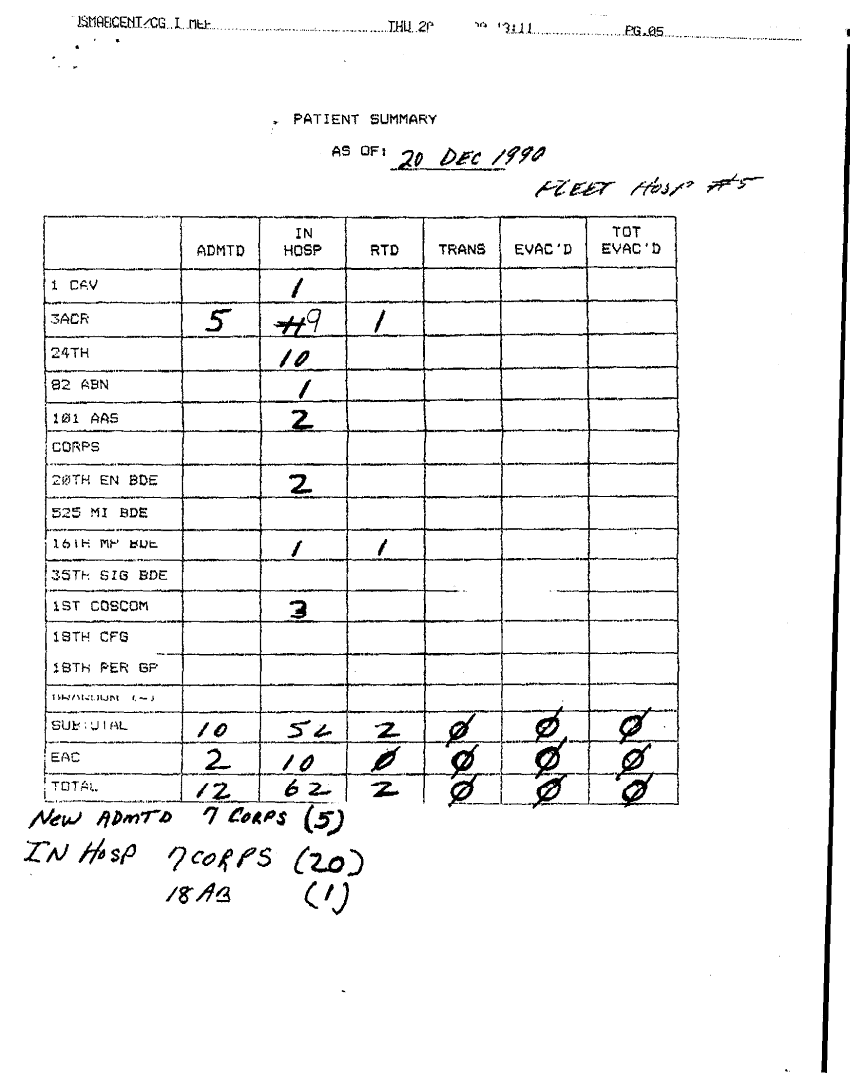 USMARCENT/CG I MEF THU 20 13:11 PG.05
PATIENT SUMMARY
AS OF: 20 DEC 1990
FLEET HOSP #5
ADMTD IN HOSP RTD TRANS EVAC'D TOT EVAC'D
1 CAV 1
3ACR 5 9 1
24TH 10
82 ABN 1
101 AAS 2
CORPS
20TH EN BDE 2
525 MI BDE
16TH MP BDE 1 1
35TH SIG BDE
1ST COSCOM 3
18TH CFG
18TH PER GP
DRAGOON (-)
SUBTOTAL 10 52 2 Ø Ø Ø
EAC 2 10 Ø Ø Ø Ø
TOTAL 12 62 2 Ø Ø Ø
NEW ADMTD 7 CORPS (5)
IN HOSP 7 CORPS (20)
18 AB (1)